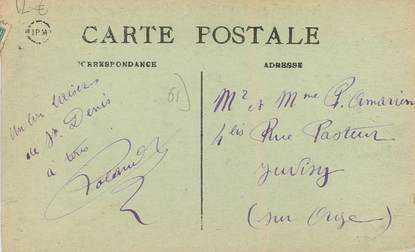 12 €
CARTE POSTALE
CORRESPONDANCE
ADRESSE
61
Un bon baiser
de St Denis
à tous
Mr et Mme P. Amarien
4 bis Rue Pasteur
Juvisy
(sur Orge)